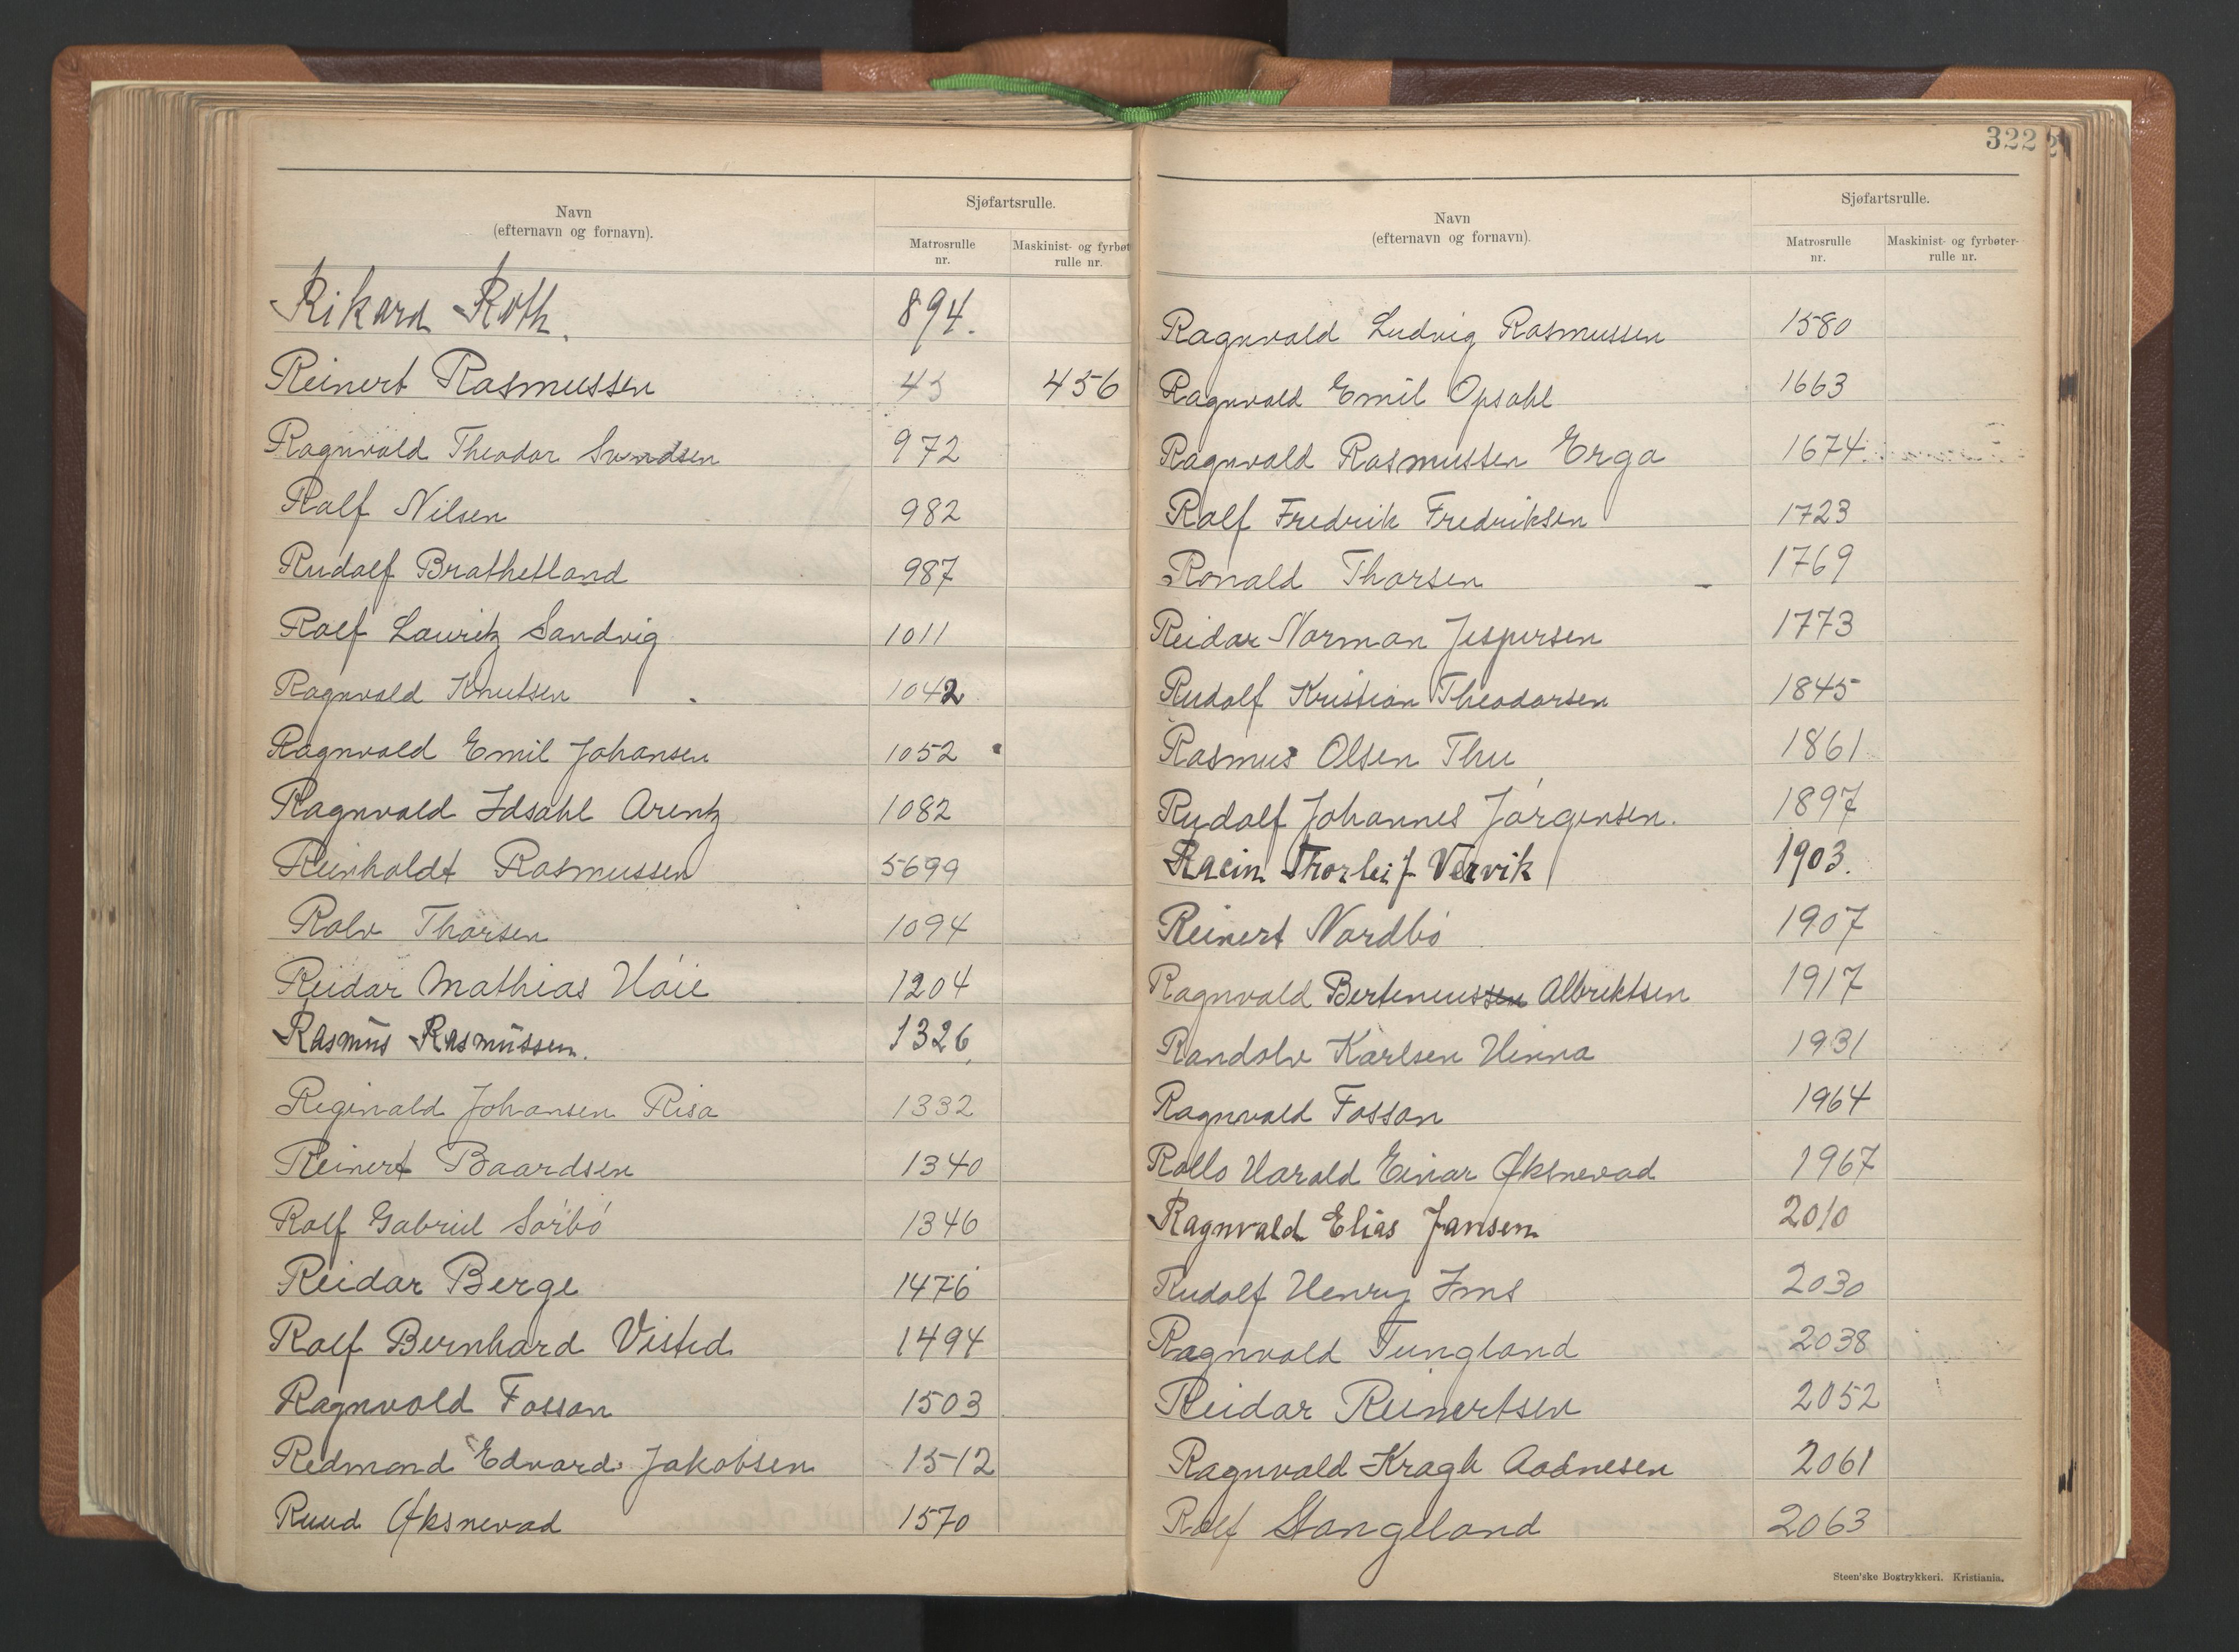 Navn
(efternavn og fornavn).
Sjøfartsrulle.
Matrosrulle
nr.
Maskinist- og fyrbøt
rulle nr.
Rikard Roth. 894.
Reinert Rasmussen 45 456
Ragnvald Theodor Svendsen 972
Ralf Nilsen 982
Rudolf Brathetland 987
Rolf Lauritz Sandvig 1011
Ragnvald Knutsen 1042
Ragnvald Emil Johansen 1052
Ragnvald Idsahl Arentz 1082
Reinholdt Rasmussen 5699
Rolv Thorsen 1094
Reidar Mathias Höie 1204
Rasmus Rasmussen. 1326
Reginald Johansen Risa 1332
Reinert Baardsen 1340
Rolf Gabriel Sörbö 1346
Reidar Berge 1476
Rolf Bernhard Visted 1494
Ragnvald Fossan 1503
Redmond Edvard Jakobsen 1512
Ruud Øksnevad 1570
322
Navn
(efternavn og fornavn).
Sjøfartsrulle.
Matrosrulle
nr.
Maskinist- og fyrbøter-
rulle nr.
Ragnvald Ludvig Rasmussen 1580
Ragnvald Emil Opsahl 1663
Ragnvald Rasmussen Erga 1674
Rolf Fredrik Fredriksen 1723
Ronald Thorsen 1769
Reidar Norman Jespersen 1773
Rudolf Kristian Theodorsen 1845
Rasmus Olsen Thu 1861
Rudolf Johannes Jörgensen. 1897
Racin Thorleif Vervik 1903.
Reinert Nordbö 1907
Ragnvald Berteneussen Albrektsen 1917
Randolv Karlsen Hinna 1931
Ragnvald Fossan 1964
Rollo Harald Einar Øksnevad 1967
Ragnvald Elias Jansen 2010
Rudolf Henry Ims 2030
Ragnvald Tungland 2038
Reidar Reinertsen 2052
Ragnvald Kragh Aadnesen 2061
Rolf Stangeland 2063
Steen'ske Bogtrykkeri. Kristiania.